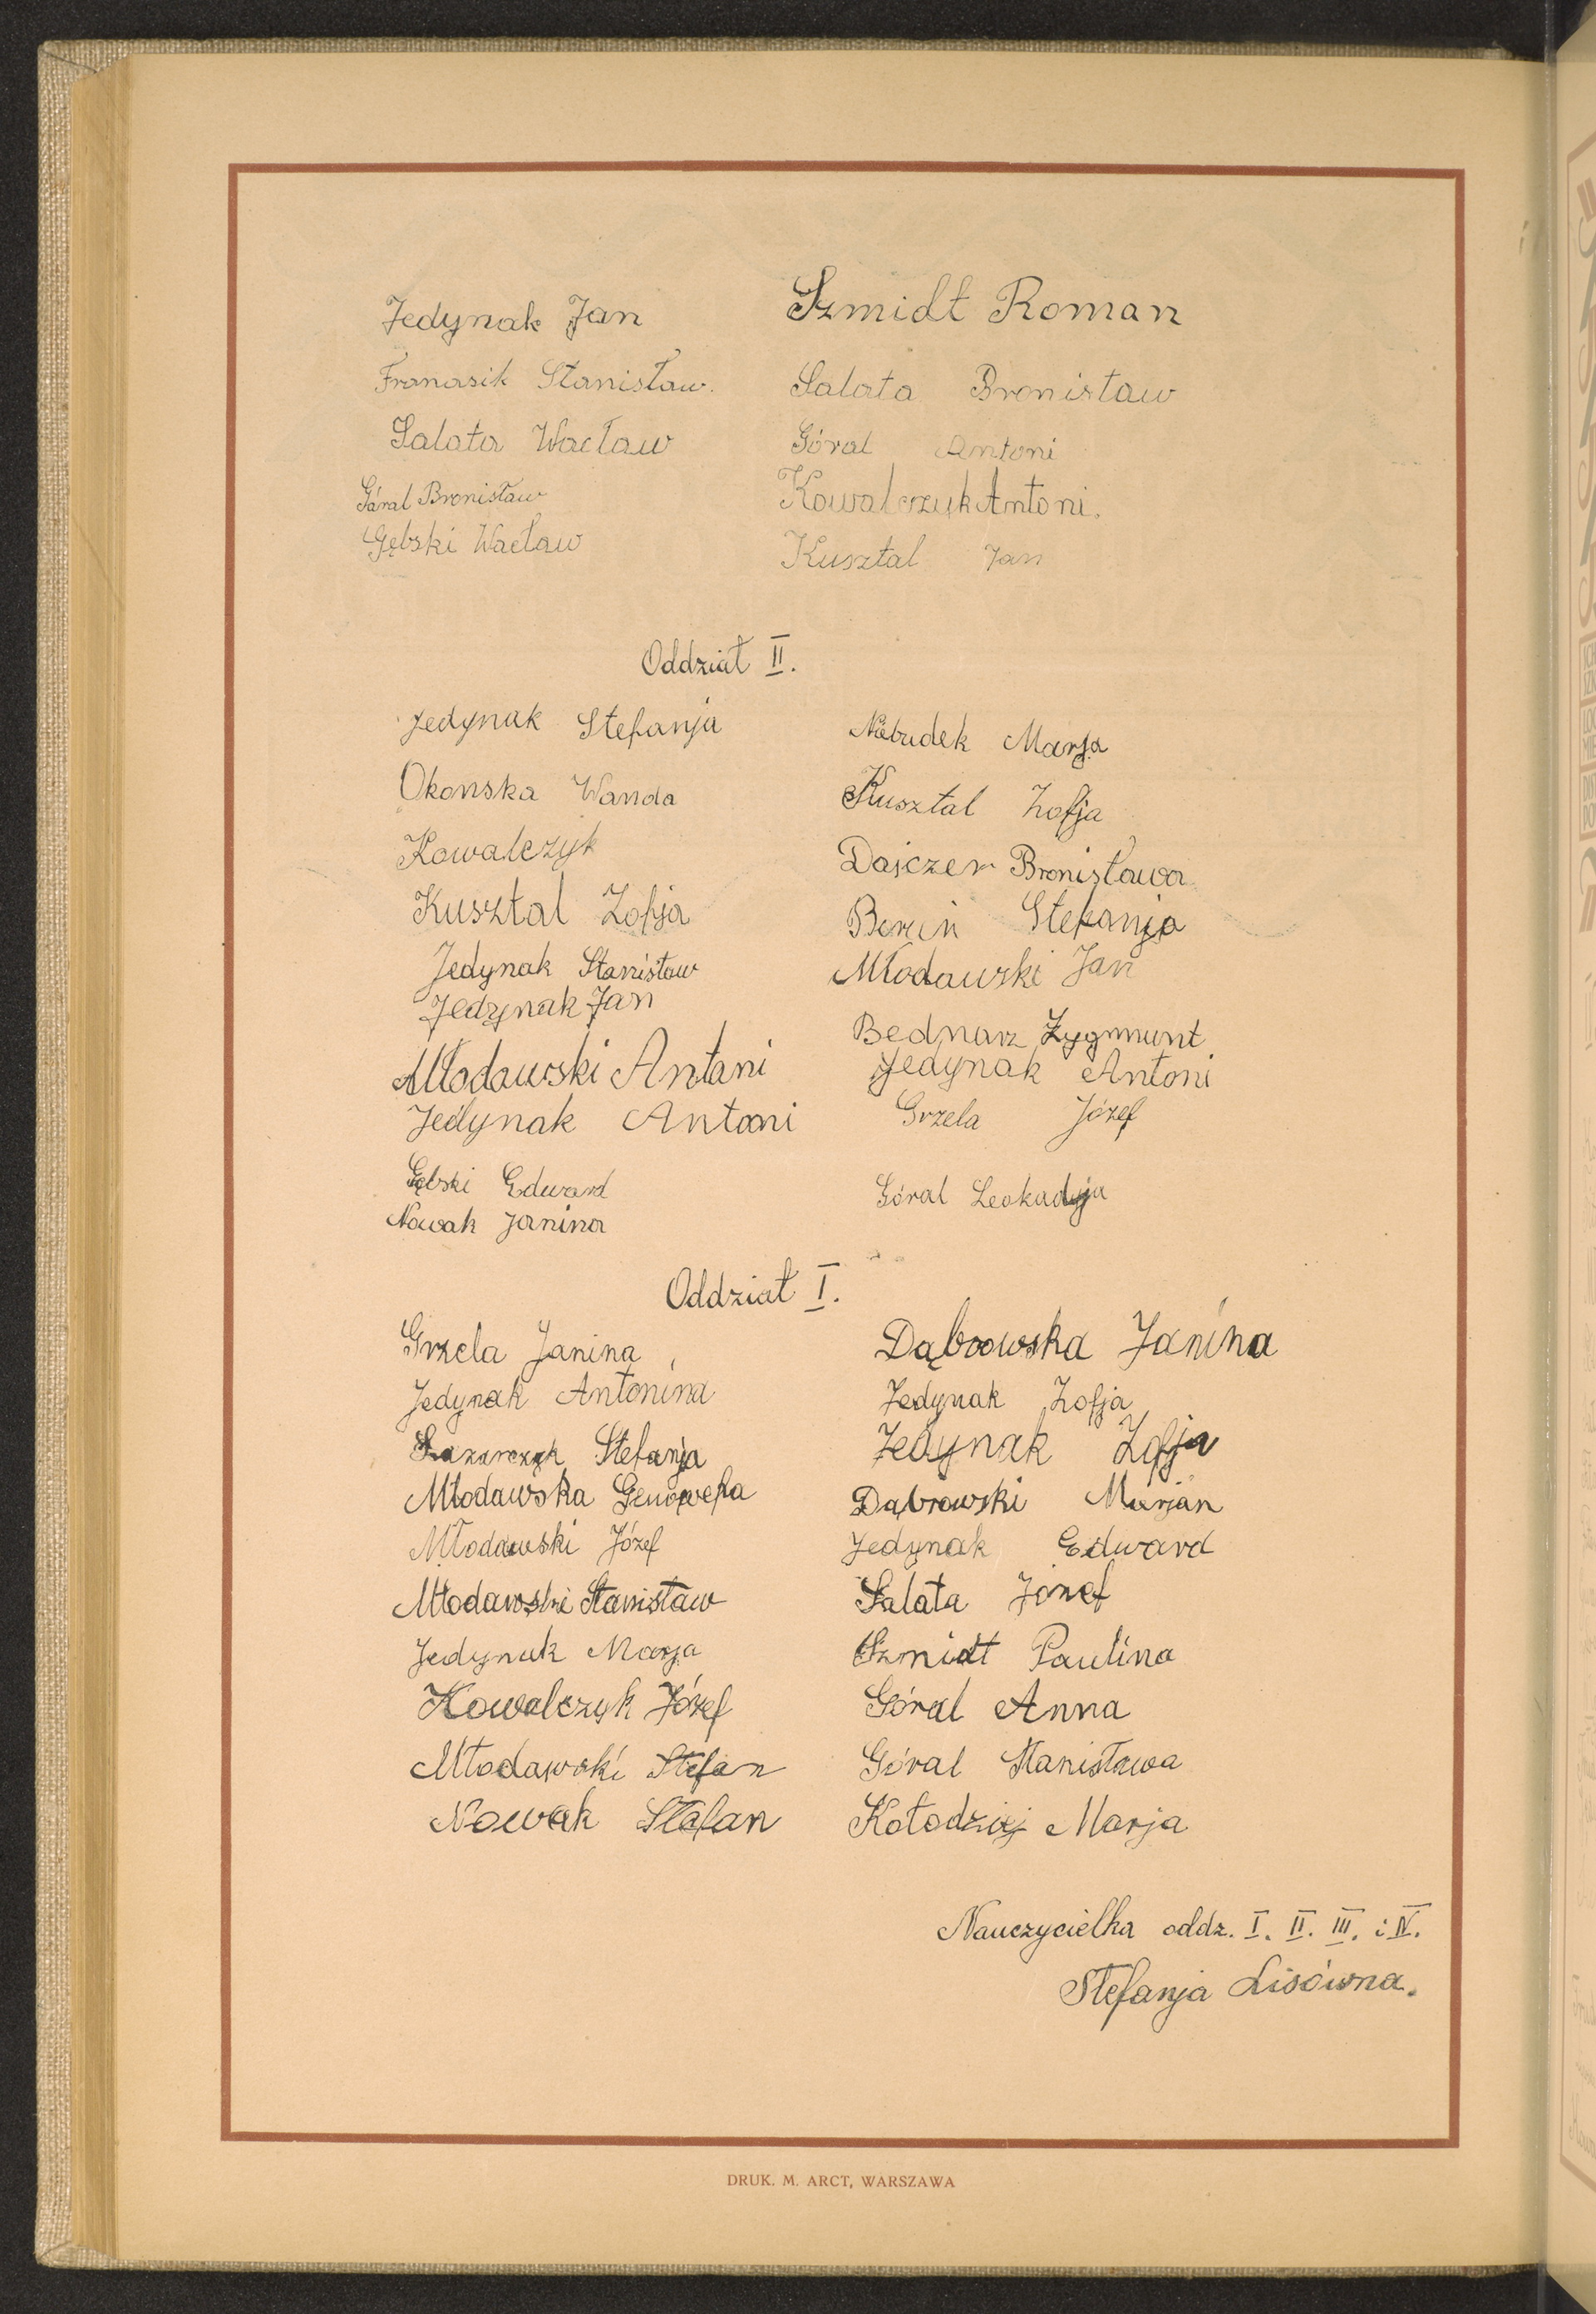 Jedynak Jan
Franasik Stanisław.
Salata Wacław
Góral Bronisław
Gębski Wacław
Szmidt Roman
Salata Bronisław
Góral Antoni
Kowalczuk Antoni.
Kusztal Jan
Oddział II.
Jedynak Stefanja
Okonska Wanda
Kowalczyk
Kusztal Zofja
Jedynak Stanisław
Jedynak Jan
Młodawski Antani
Jedynak Antoni
Gębski Edward
Nowak Janina
Niebudek Marja
Kusztal Zofja
Dajczer Bronisława
Stefanja
Młodawski Jan
Bednarz Zygmunt
Jedynak Antoni
Grzela Józef
Góral Leokadja
Oddział I.
Grzela Janina
Jedynak Antonina
Stefanja
Młodawska Genowefa
Młodawski Józef
Młodawski Stanisław
Jedynak Marja
Kowalczyk Józef
Młodawski Stefan
Nowak Stefan
Dąbrowska Janina
Jedynak Zofja
Jedynak Zofja
Dąbrowski Marjan
Jedynak Edward
Salata Józef
Szmidt Paulina
Góral Anna
Góral Stanisława
Kołodziej Marja
Nauczycielka oddz. I. II. III. i IV.
Stefanja Lisówna.
DRUK. M. ARCT, WARSZAWA